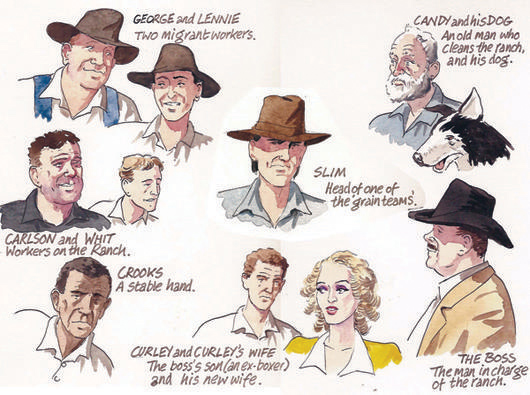 GEORGE and LENNIE
TWO migrant workers.
CANDY and his DOG
An old man who
cleans the ranch,
and his dog.
SLIM
Head of one of
the grain teams'.
CARLSON and WHIT
Workers on the Ranch.
CROOKS
A stable hand.
CURLEY and CURLEY'S WIFE
The boss's son (an ex-boxer)
and his new wife.
THE BOSS
The man in charge
of the ranch.